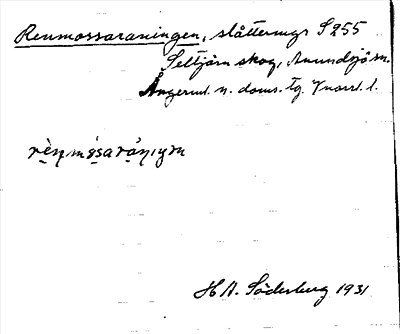 Renmossaraningen, slåttemyr S255
Seltjärn skog, Anundsjö sn.
Ångerml. n. doms. tg. Vnorrl. l.
H A. Söderberg 1931